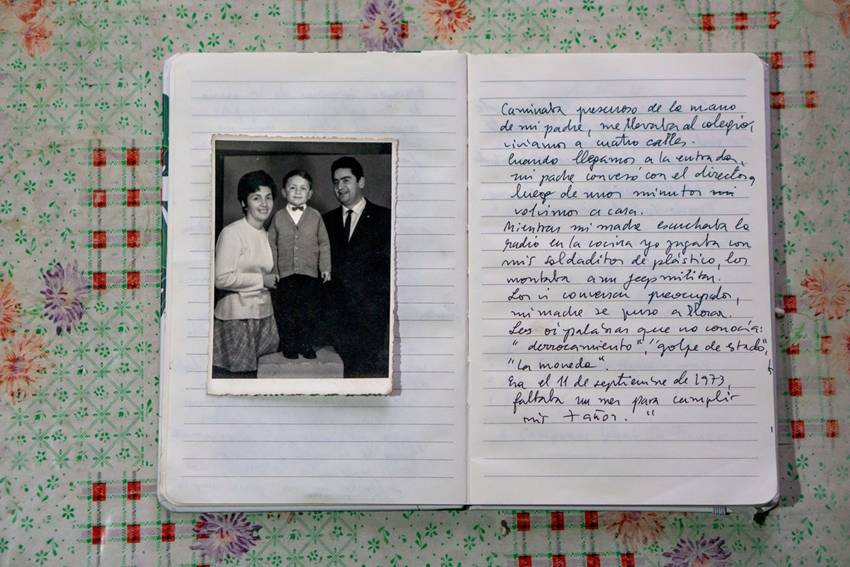 Caminaba presuroso de la mano
de mi padre, me llevaba al colegio,
viviamos a cuatro calles.
Cuando llegamos a la entrada,
mi padre conversó con el director y
luego de unos minutos
volvimos a casa.
Mientras mi madre escuchaba la
radio en la cocina yo jugaba con
mis soldaditos de plástico, los
montaba a un jeep militar.
Los vi conversar preocupados,
mi madre se puso a llorar.
Les oi palabras que no conocía:
"derrocamiento", "golpe de estado",
"La moneda".
Era el 11 de septiembre de 1973,
faltaba un mes para cumplir
mis 7 años. "